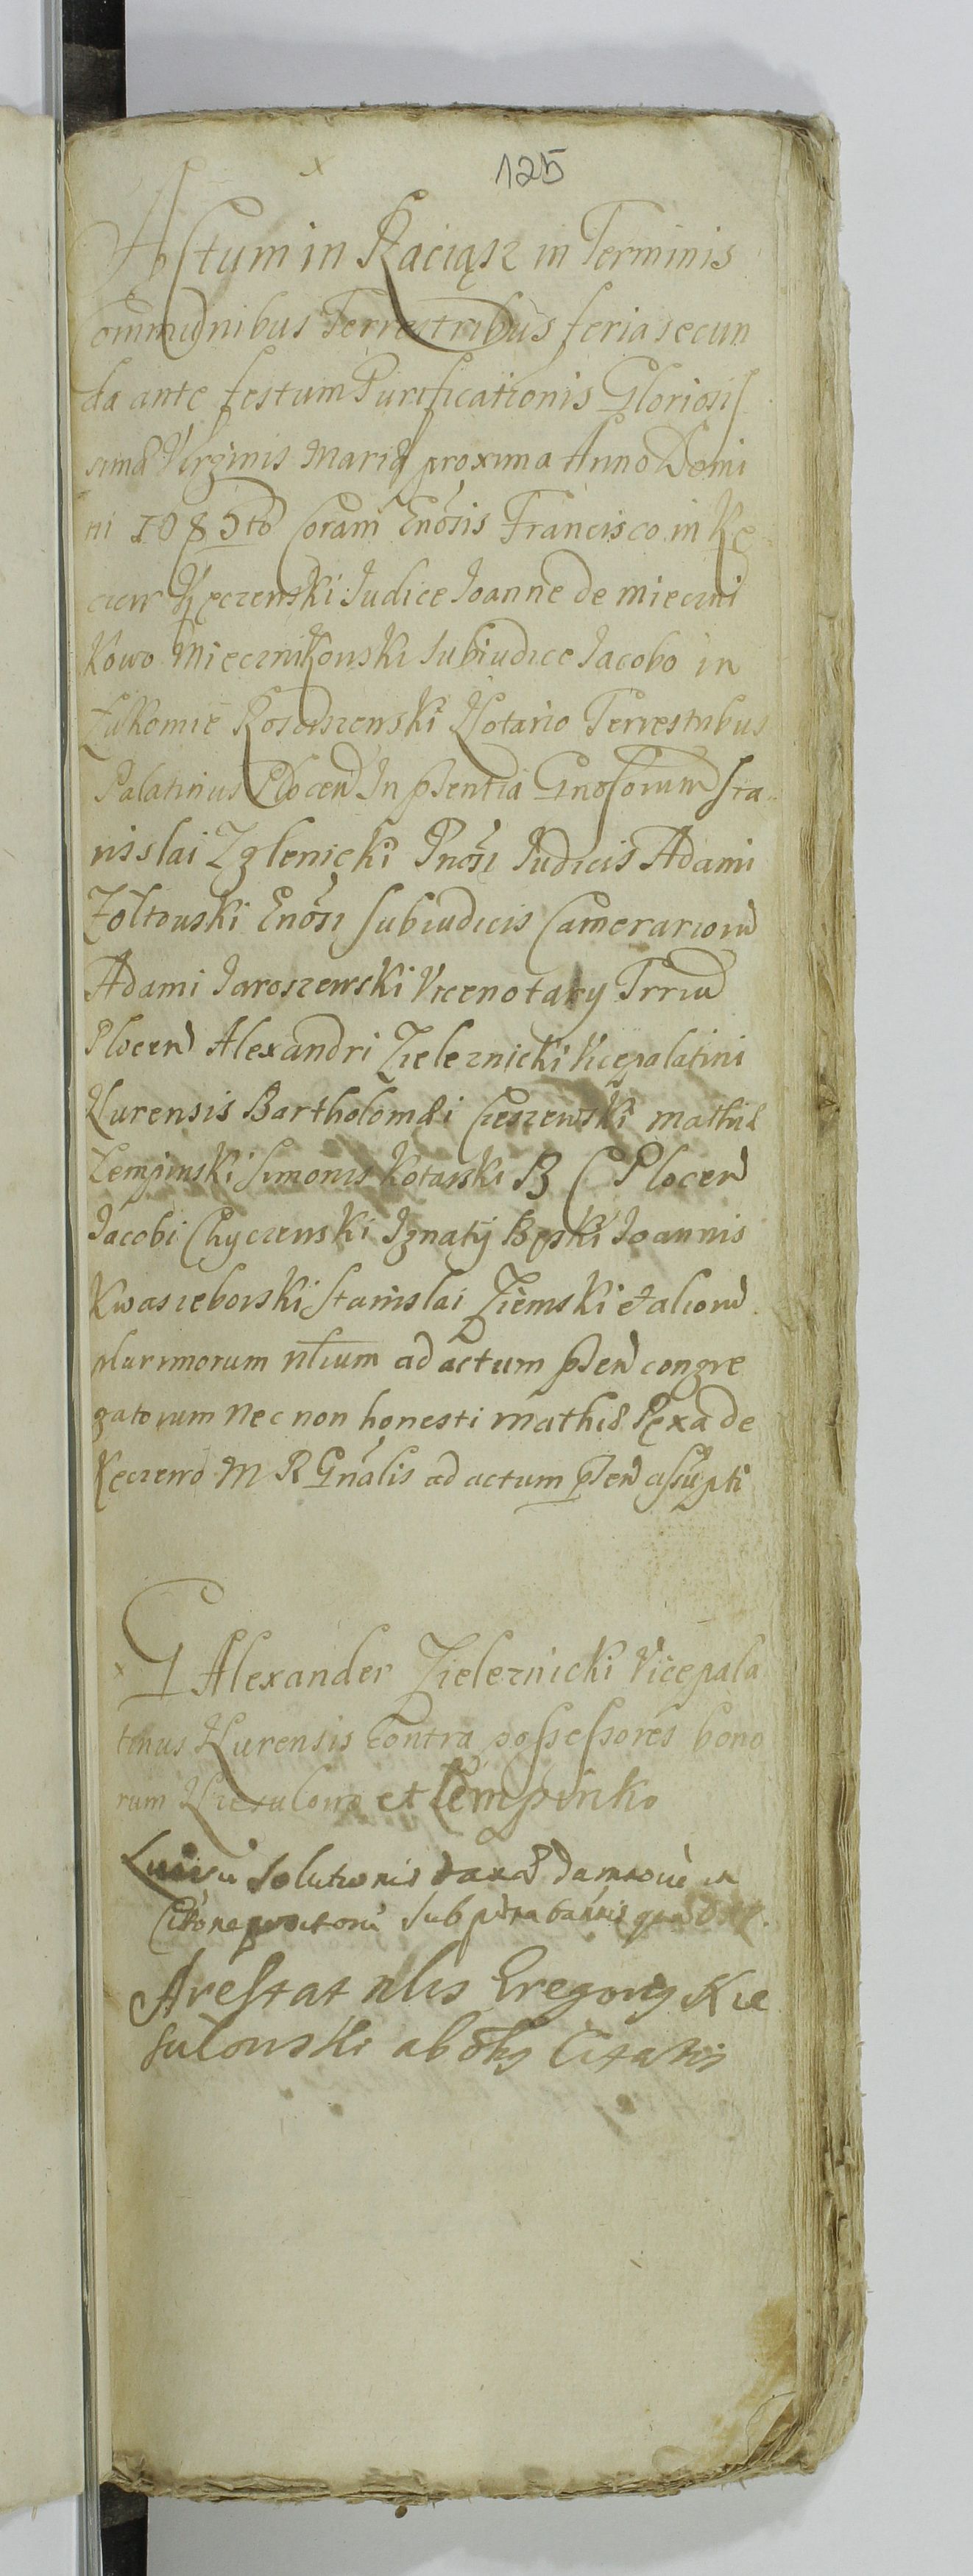 125
Actum in Raciąsz in Terminis
Communibus Terrestribus feria secun
da ante festum Purificationis Gloriosis
simæ Virginis Mariæ proxima Anno Domi
ni 1685to Coram Gnosis Francisco in Kę
czew Kęczewski Iudice Ioanne de Mieczni
kowo Miecznikowski Subiudice Iacobo in
Rosciszewski Notario Terrestribus
Palatinus Plocen In psentia Gnosorum Sta
nislai Zglenicki Gnosi Iudicis Adami
Zołtowski Gnosi Subiudicis Camerariorum
Adami Iaroszewski Vicenotary Trrium
Plocen Alexandri Zieleznicki Vicepalatini
Nurensis Bartholomæi Cieszewski Mathiæ
Lempinski Simonis Kotarski B C Plocen
Iacobi Chyczewski Ignatij Bęski Ioannis
Kwasieborski Stanislai Ziemski et aliorum
plurimorum nlium ad actum psen congre
gatorum nec non honesti Mathiæ Pęxa de
Kęczewo M R Gnalis ad actum psen assupti
G Alexander Zieleznicki Vicepala
tinus Nurensis Contra possessores bono
rum et Lempinko
solutionis
sub
Arestat nlis Gregorius Kie
sulowski ab Citatis